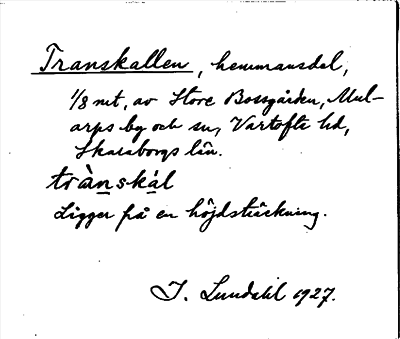 Transkallen, hemmansdel,
1/8 mt. av Store Bossgården, Mul-
arps by och sn, Vartofta hd,
Skaraborgs län.
trànskál
Ligger på en höjdsträckning.
J. Lundahl 1927.